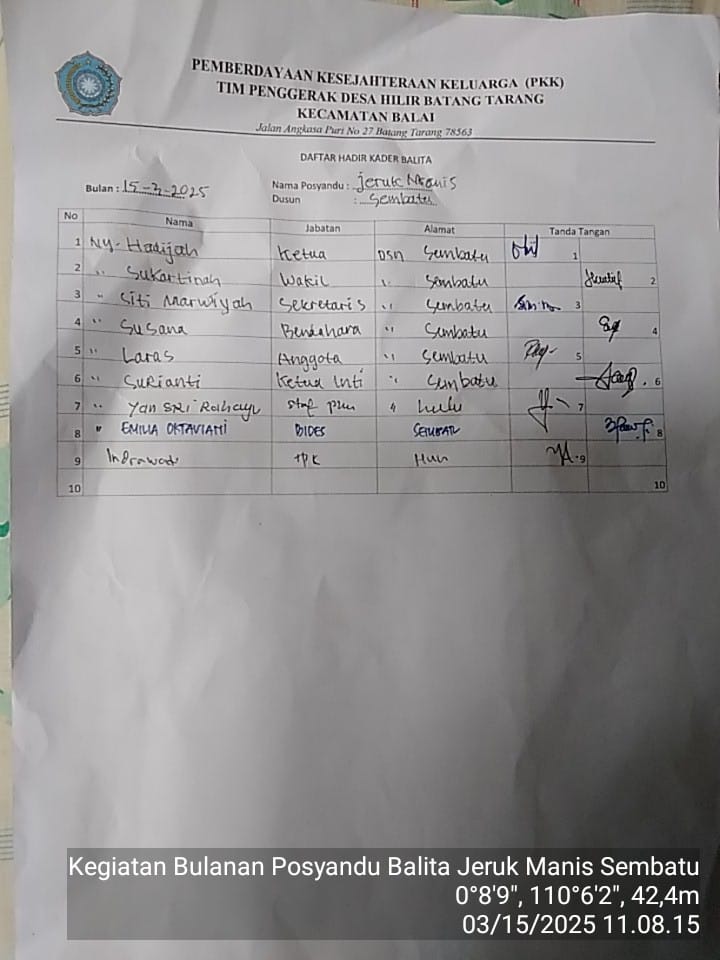 PEMBERDAYAAN KESEJAHTERAAN KELUARGA (PKK)
TIM PENGGERAK DESA HILIR BATANG TARANG
KECAMATAN BALAI
Jalan Angkasa Puri No 27 Batang Tarang 78563
DAFTAR HADIR KADER BALITA
Bulan : 15-3-2025 Nama Posyandu : Jeruk Manis
Dusun : Sembatu
No Nama Jabatan Alamat Tanda Tangan
1 Ny. Hadijah Ketua DSN Sembatu 1
2 " Sukartinah Wakil " Sembatu 2
3 " Siti Marwiyah Sekretaris " Sembatu 3
4 " Susana Bendahara " Sembatu 4
5 " Laras Anggota " Sembatu 5
6 " Surianti Ketua Inti " Sembatu 6
7 " Yan Sri Rahayu Staf " Hulu 7
8 " EMILIA OKTAVIANI BIDES 8
9 Indrawati TPK 9
10 10
Kegiatan Bulanan Posyandu Balita Jeruk Manis Sembatu
0°8'9", 110°6'2", 42,4m
03/15/2025 11.08.15